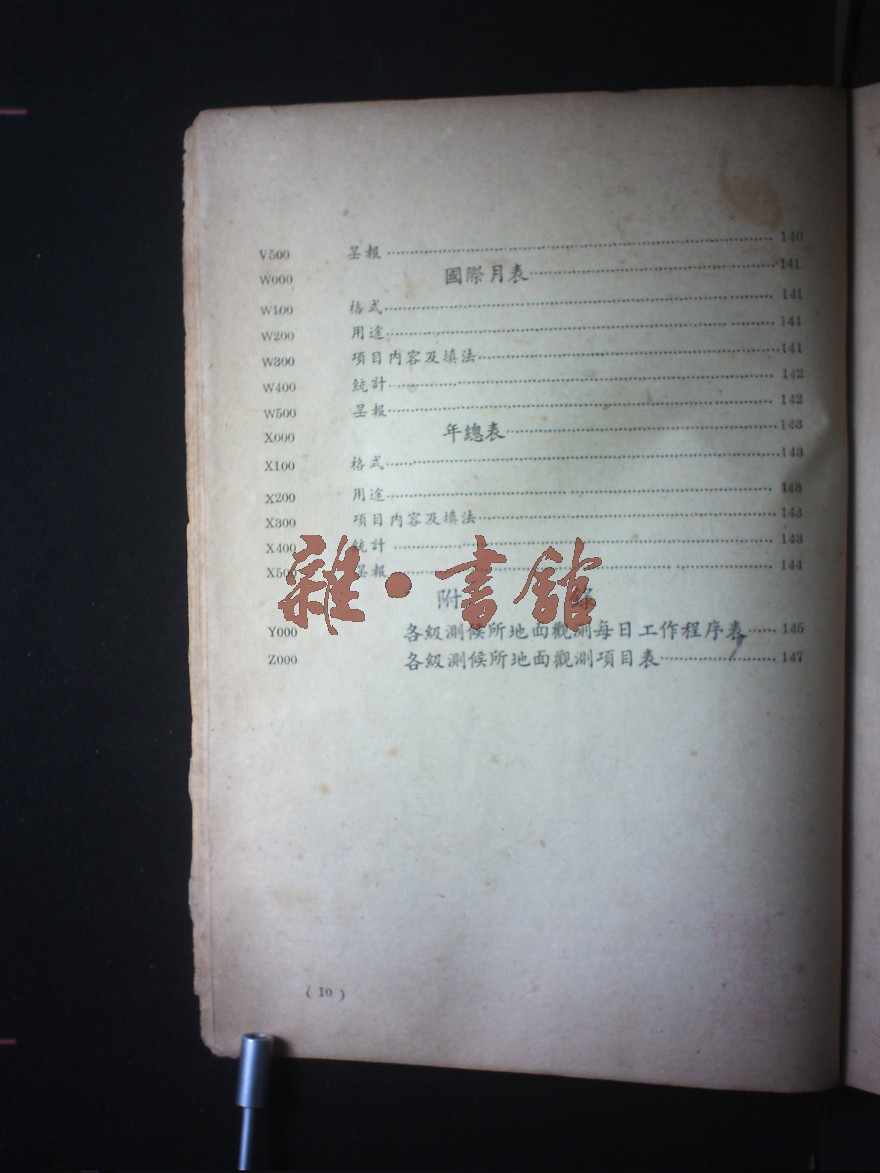 V500 呈報 140
W000 國際月表 141
W100 格式 141
W200 用途 141
W300 項目內容及填法 141
W400 統計 142
W500 呈報 142
X000 年總表 143
X100 格式 143
X200 用途 143
X300 項目內容及填法 143
X400 統計 143
X500 呈報 144
附 錄
雜·書館
Y000 各級測候所地面觀測每日工作程序表 145
Z000 各級測候所地面觀測項目表 147
(10)